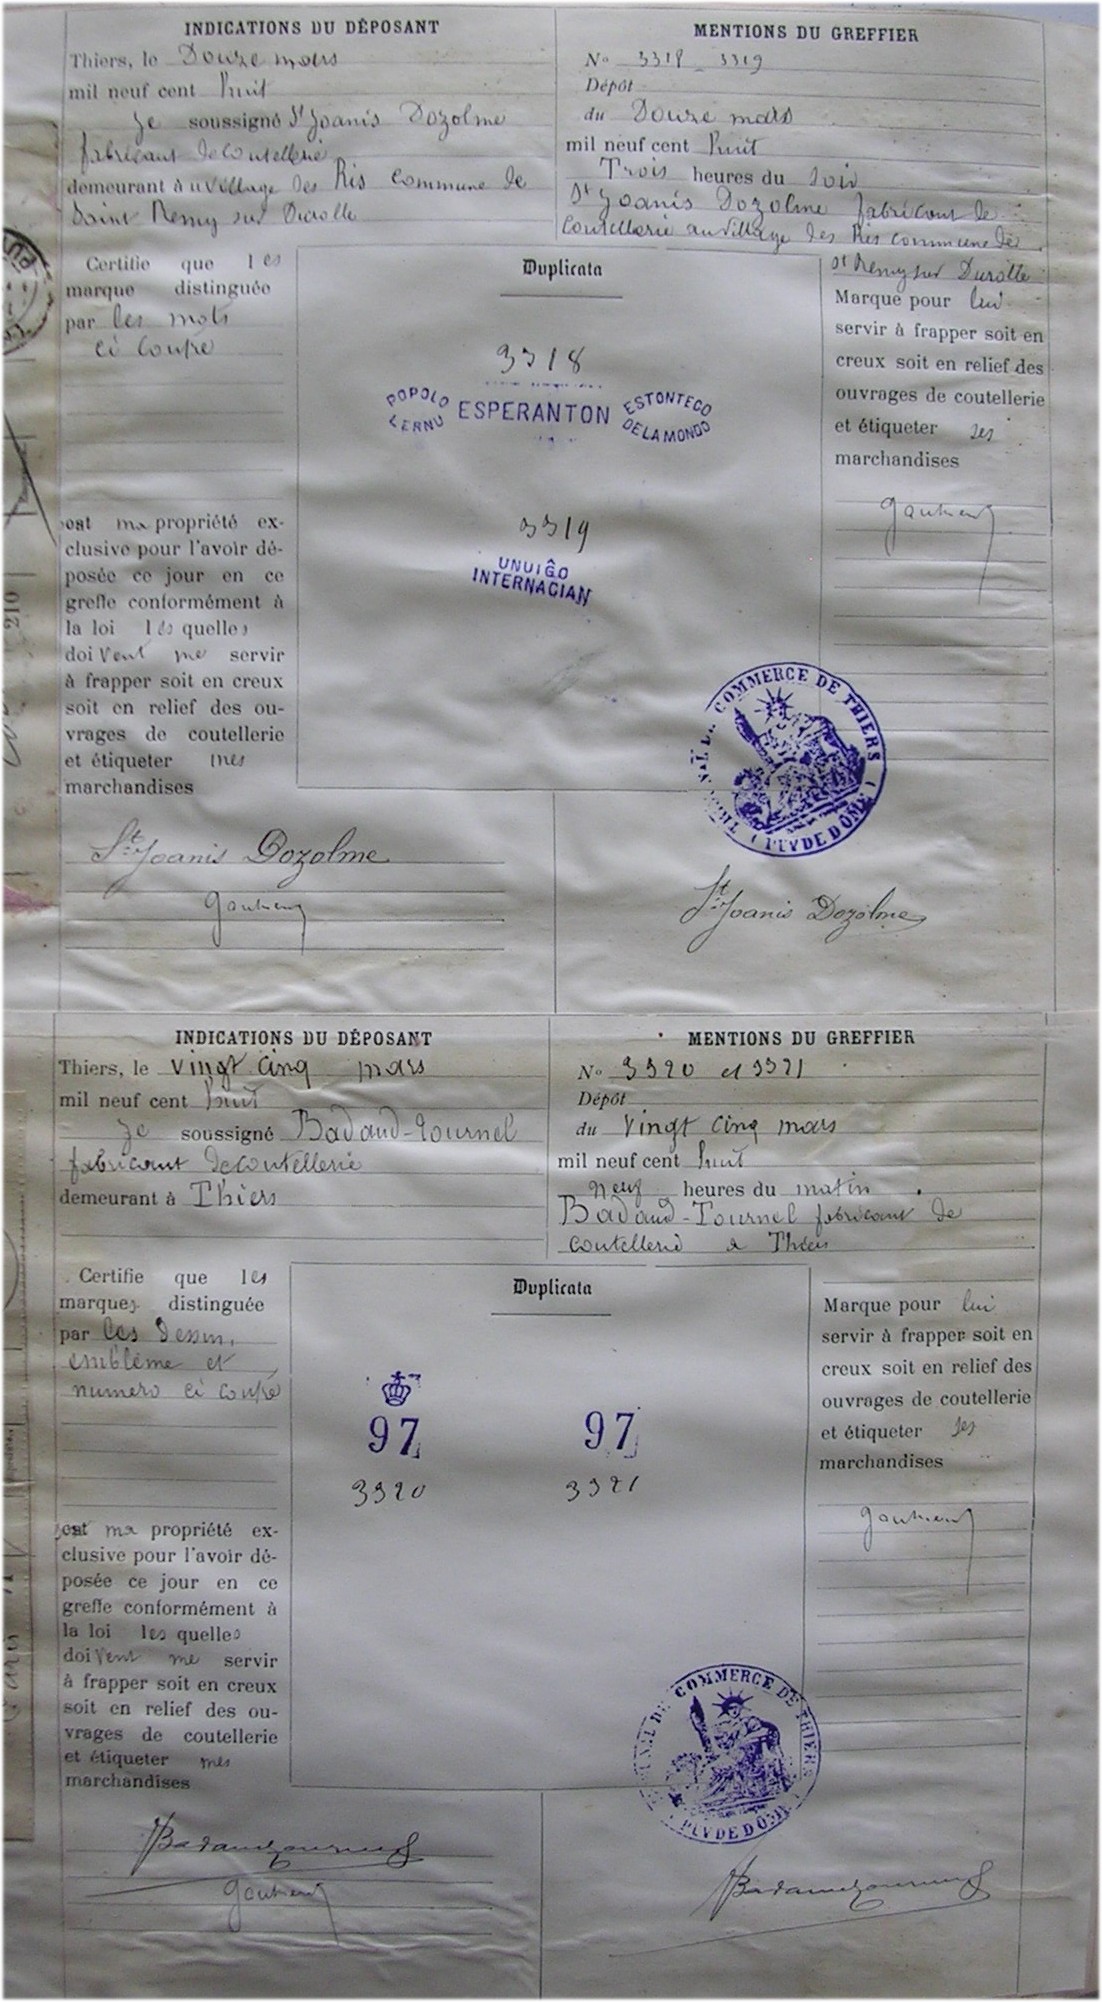 INDICATIONS DU DÉPOSANT
Thiers, le Douze mars
mil neuf cent huit
Je soussigné St Joanis Dozolme
fabricant de coutellerie
demeurant à u village des Ris commune de
Saint Remy sur Durolle
MENTIONS DU GREFFIER
No 3318 - 3319
Dépôt
du Douze mars
mil neuf cent huit
Trois heures du soir
St Joanis Dozolme fabricant de
Coutellerie au village des Ris commune de
St Remy sur Durolle
Certifie que les
marque distinguée
par les mots
ci contre
est ma propriété ex-
clusive pour l'avoir dé-
posée ce jour en ce
greffe conformément à
la loi les quelles
doivent me servir
à frapper soit en creux
soit en relief des ou-
vrages de coutellerie
et étiqueter mes
marchandises
Duplicata
3318
POPOLO LERNU ESPERANTON ESTONTECO DE LA MONDO
3319
UNUIĜO
INTERNACIAN
Marque pour lui
servir à frapper soit en
creux soit en relief des
ouvrages de coutellerie
et étiqueter ses
marchandises
TRIBUNAL DE COMMERCE DE THIERS (PUY DE DÔME)
St Joanis Dozolme
St Joanis Dozolme
210
INDICATIONS DU DÉPOSANT
Thiers, le vingt cinq mars
mil neuf cent huit
Je soussigné Badaud-Tournel
fabricant de coutellerie
demeurant à Thiers
MENTIONS DU GREFFIER
No 3320 et 3321
Dépôt
du vingt cinq mars
mil neuf cent huit
neuf heures du matin
Badaud-Tournel fabricant de
coutellerie à Thiers
Certifie que les
marques distinguée
par les dessin,
emblème et
numero ci contre
est ma propriété ex-
clusive pour l'avoir dé-
posée ce jour en ce
greffe conformément à
la loi les quelles
doivent me servir
à frapper soit en creux
soit en relief des ou-
vrages de coutellerie
et étiqueter mes
marchandises
Duplicata
97 97
3320 3321
Marque pour lui
servir à frapper soit en
creux soit en relief des
ouvrages de coutellerie
et étiqueter ses
marchandises
TRIBUNAL DE COMMERCE DE THIERS (PUY DE DÔME)
Badaud Tournel
Badaud Tournel